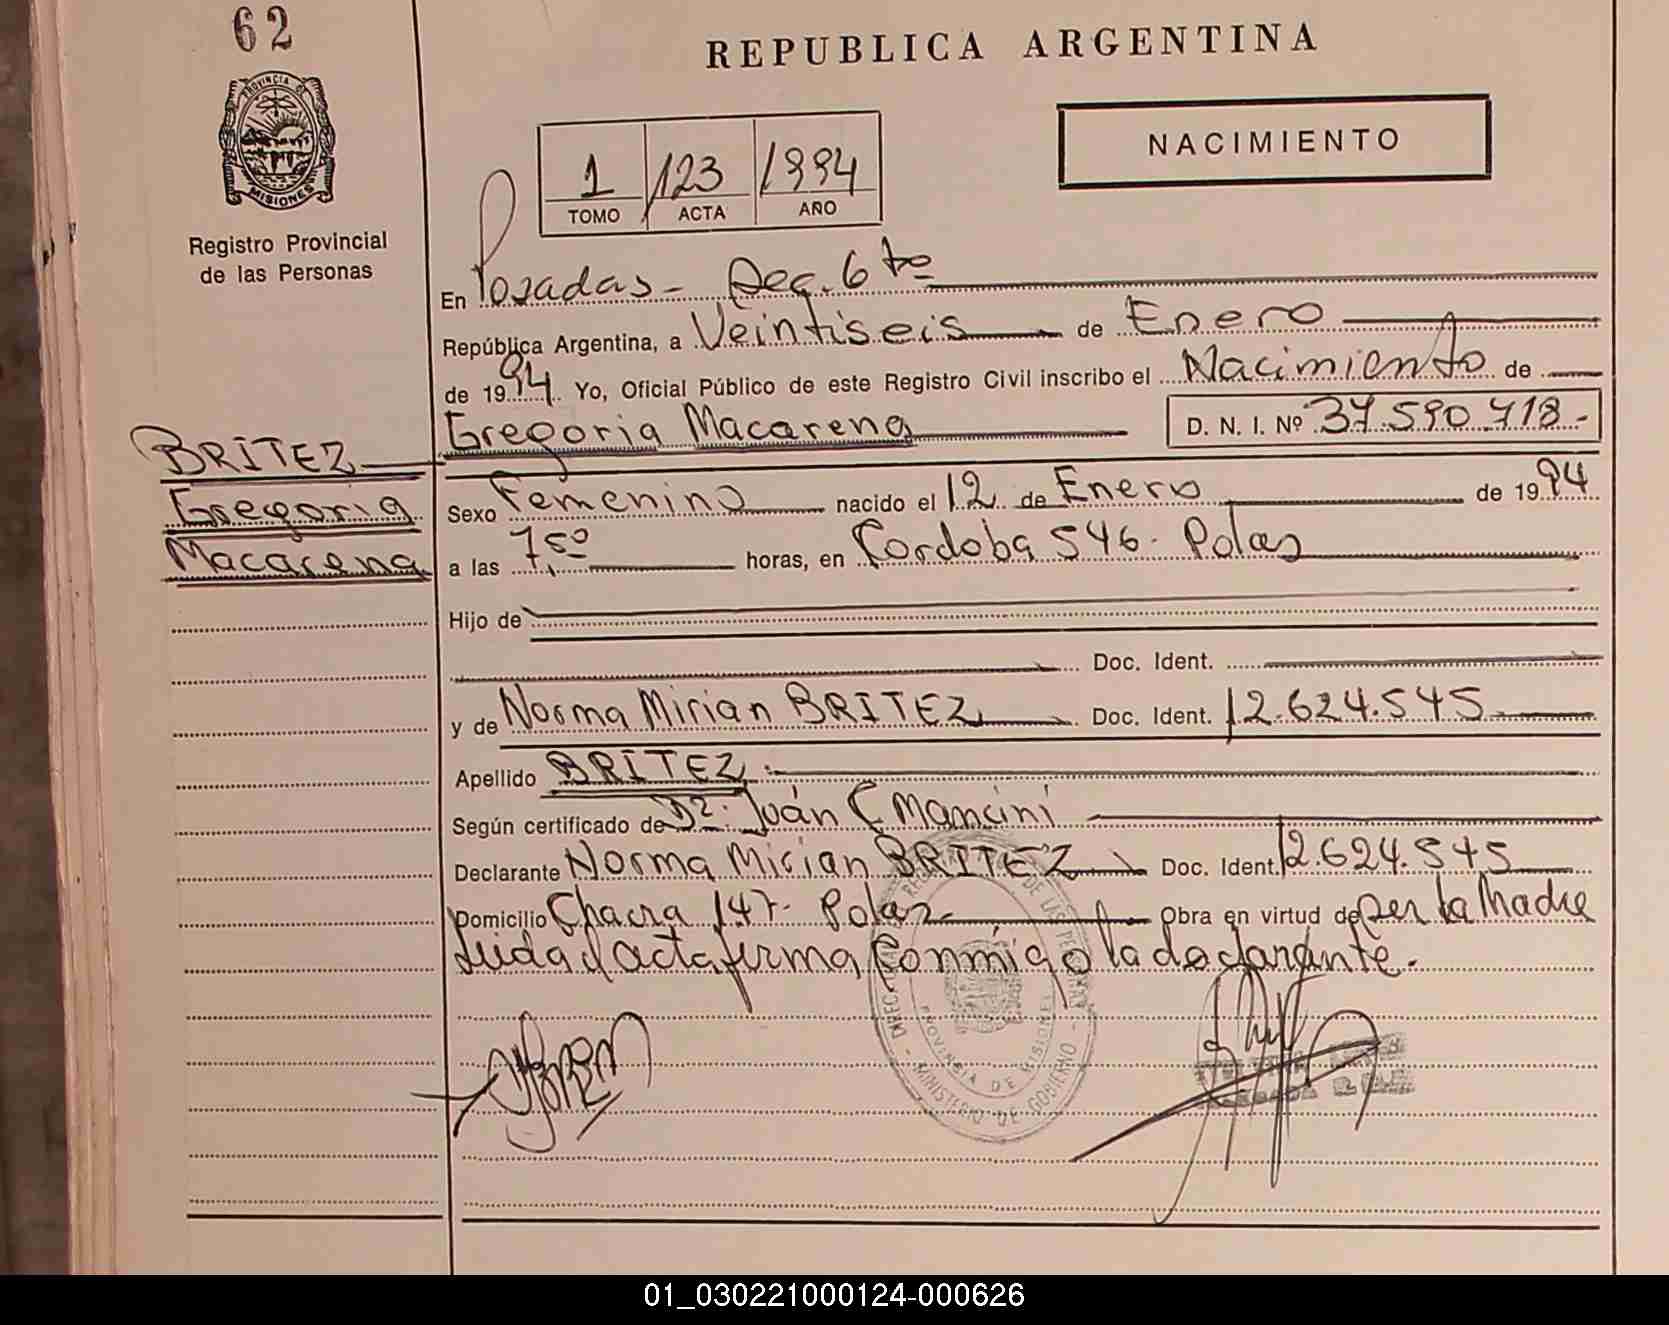 62
REPUBLICA ARGENTINA
PROVINCIA DE
MISIONES
Registro Provincial
de las Personas
NACIMIENTO
1 123 1994
TOMO ACTA AÑO
En Posadas - Sec. 6 to
República Argentina, a Veintiseis de Enero
de 1994 Yo, Oficial Público de este Registro Civil inscribo el Nacimiento de
Gregoria Macarena D. N. I. Nº 37.590.718.-
BRITEZ
Gregoria
Macarena
Sexo Femenino nacido el 12 de Enero de 1994
a las 7,50 horas, en Cordoba 546. Pdas
Hijo de
Doc. Ident.
y de Norma Mirian BRITEZ Doc. Ident. 12.624.545
Apellido BRITEZ
Según certificado de Dr. Juán C Mancini
Declarante Norma Mirian BRITEZ Doc. Ident. 12.624.545
Domicilio Chacra 147. Pdas Obra en virtud de ser la Madre
Leida el acta firma conmigo la declarante.
DE LAS PERSONAS
PROVINCIA DE MISIONES
- MINISTERIO DE GOBIERNO -
01_030221000124-000626